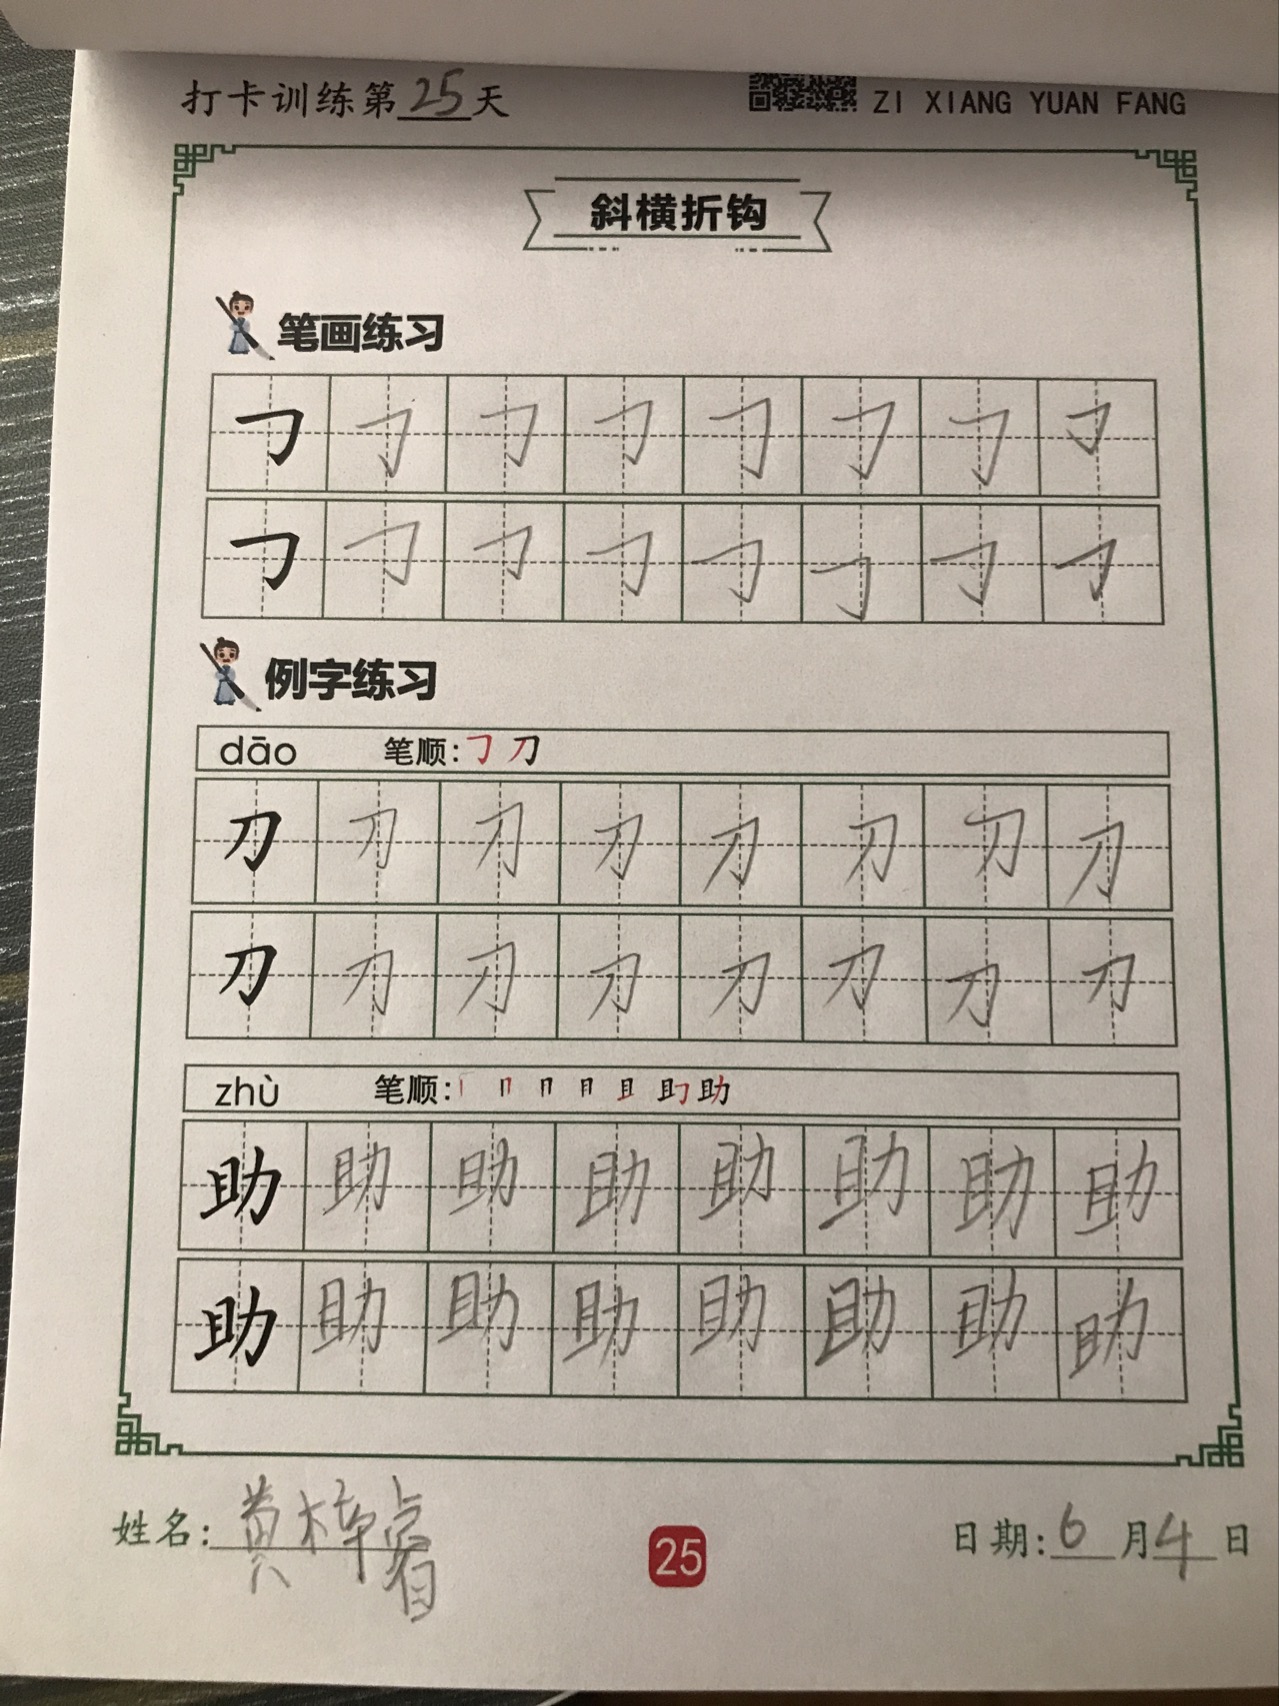 打卡训练第25天 ZI XIANG YUAN FANG
斜横折钩
笔画练习
㇆ ㇆ ㇆ ㇆ ㇆ ㇆ ㇆ ㇆
㇆ ㇆ ㇆ ㇆ ㇆ ㇆ ㇆ ㇆
例字练习
dāo 笔顺:㇆ 刀
刀 刀 刀 刀 刀 刀 刀 刀
刀 刀 刀 刀 刀 刀 刀 刀
zhù 笔顺:丨 冂 冃 月 且 助 助
助 助 助 助 助 助 助 助
助 助 助 助 助 助 助 助
姓名:黄梓睿 25 日期:6月4日